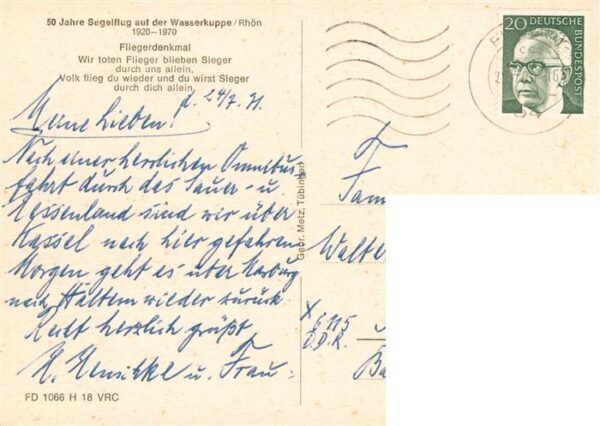 50 Jahre Segelflug auf der Wasserkuppe/Rhön
1920-1970
Fliegerdenkmal
Wir toten Flieger blieben Sieger
durch uns allein,
Volk flieg du wieder und du wirst Sieger
durch dich allein.
d. 24/7. 71.
Meine Lieben!
Nach einer herrlichen Omnibus
fahrt durch das Sauer- u.
Hessenland sind wir über
Kassel nach hier gefahren
Morgen geht es über Marburg
nach Haltern wieder zurück
Recht herzlich grüßt
H. u. Frau
FD 1066 H 18 VRC
Gebr. Metz, Tübingen
20 DEUTSCHE
BUNDESPOST
F
Fam
Walter
X 6115
D.D.R.
Ba